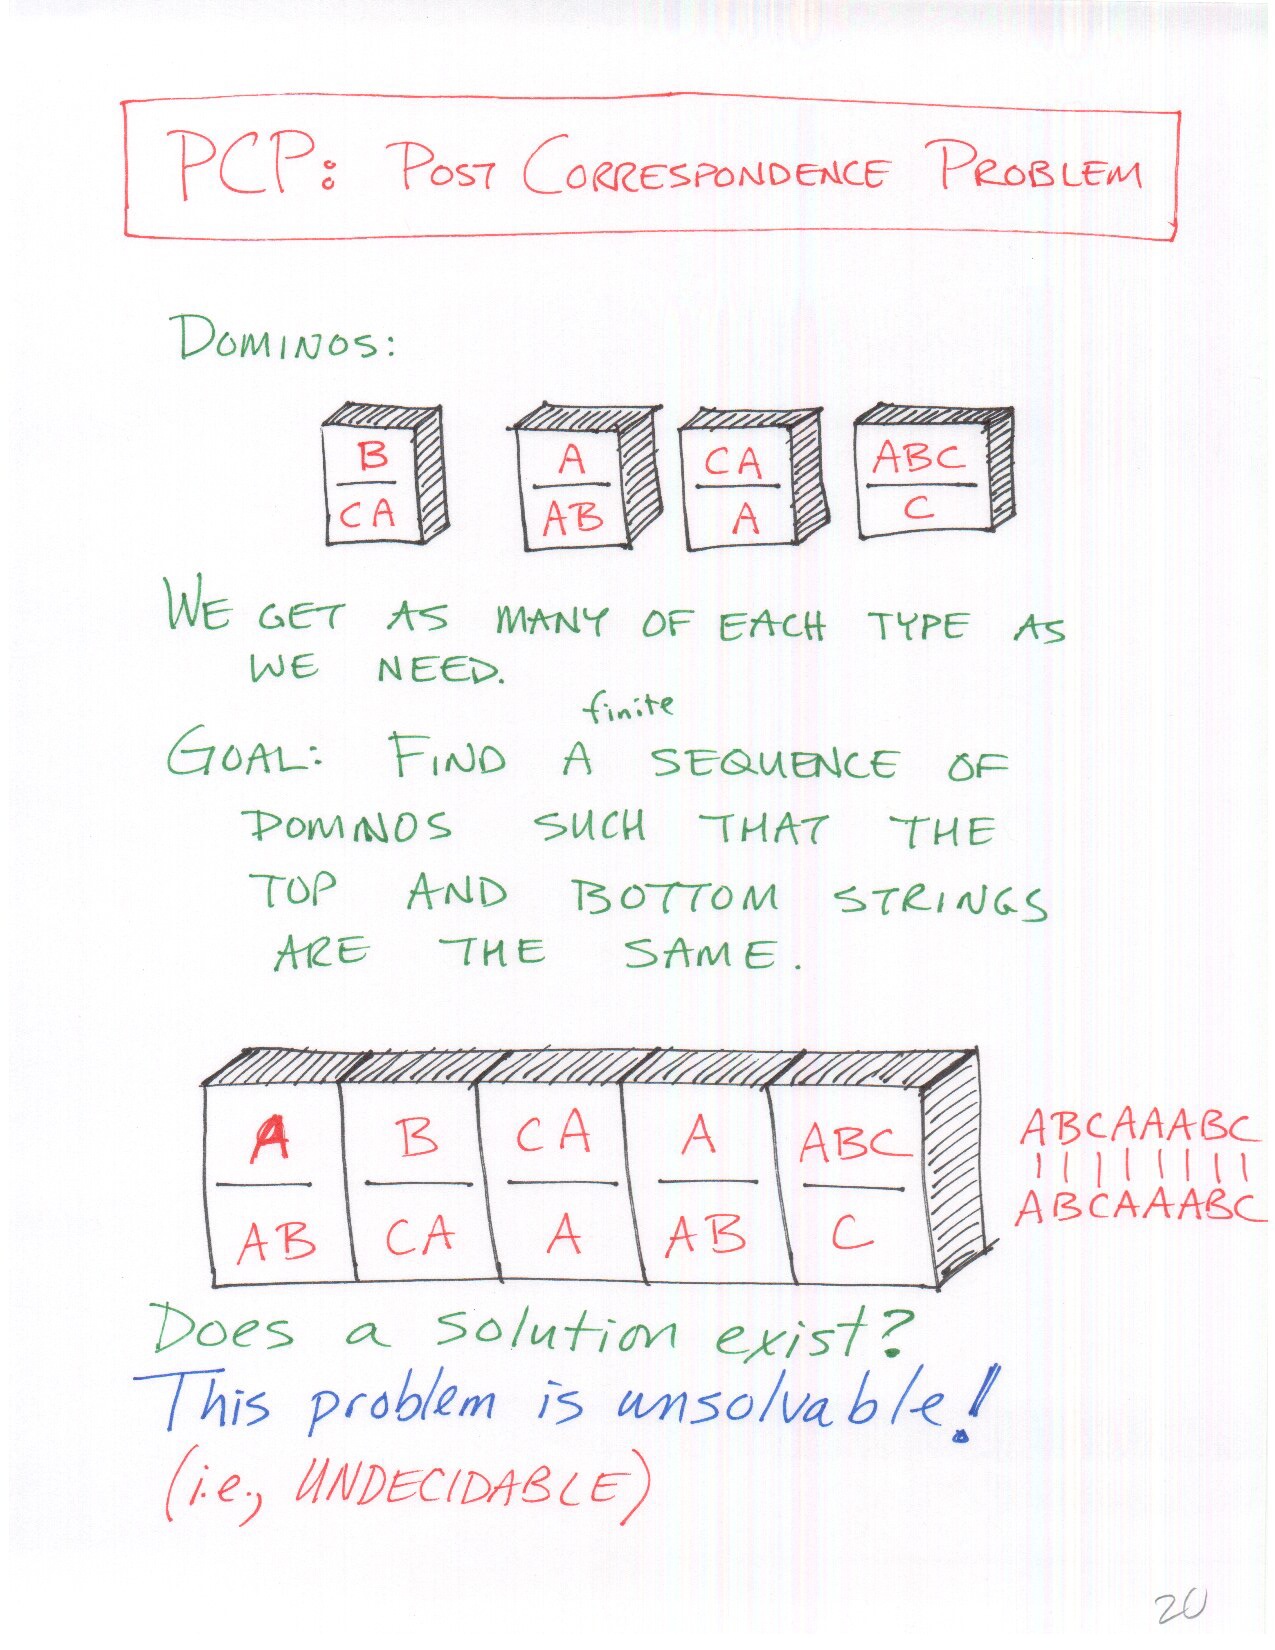 PCP: POST CORRESPONDENCE PROBLEM
DOMINOS:
B A CA ABC
CA AB A C
WE GET AS MANY OF EACH TYPE AS
WE NEED.
finite
GOAL: FIND A SEQUENCE OF
DOMINOS SUCH THAT THE
TOP AND BOTTOM STRINGS
ARE THE SAME.
A B CA A ABC ABCAAABC
AB CA A AB C ABCAAABC
Does a solution exist?
This problem is unsolvable!
(i.e., UNDECIDABLE)
20